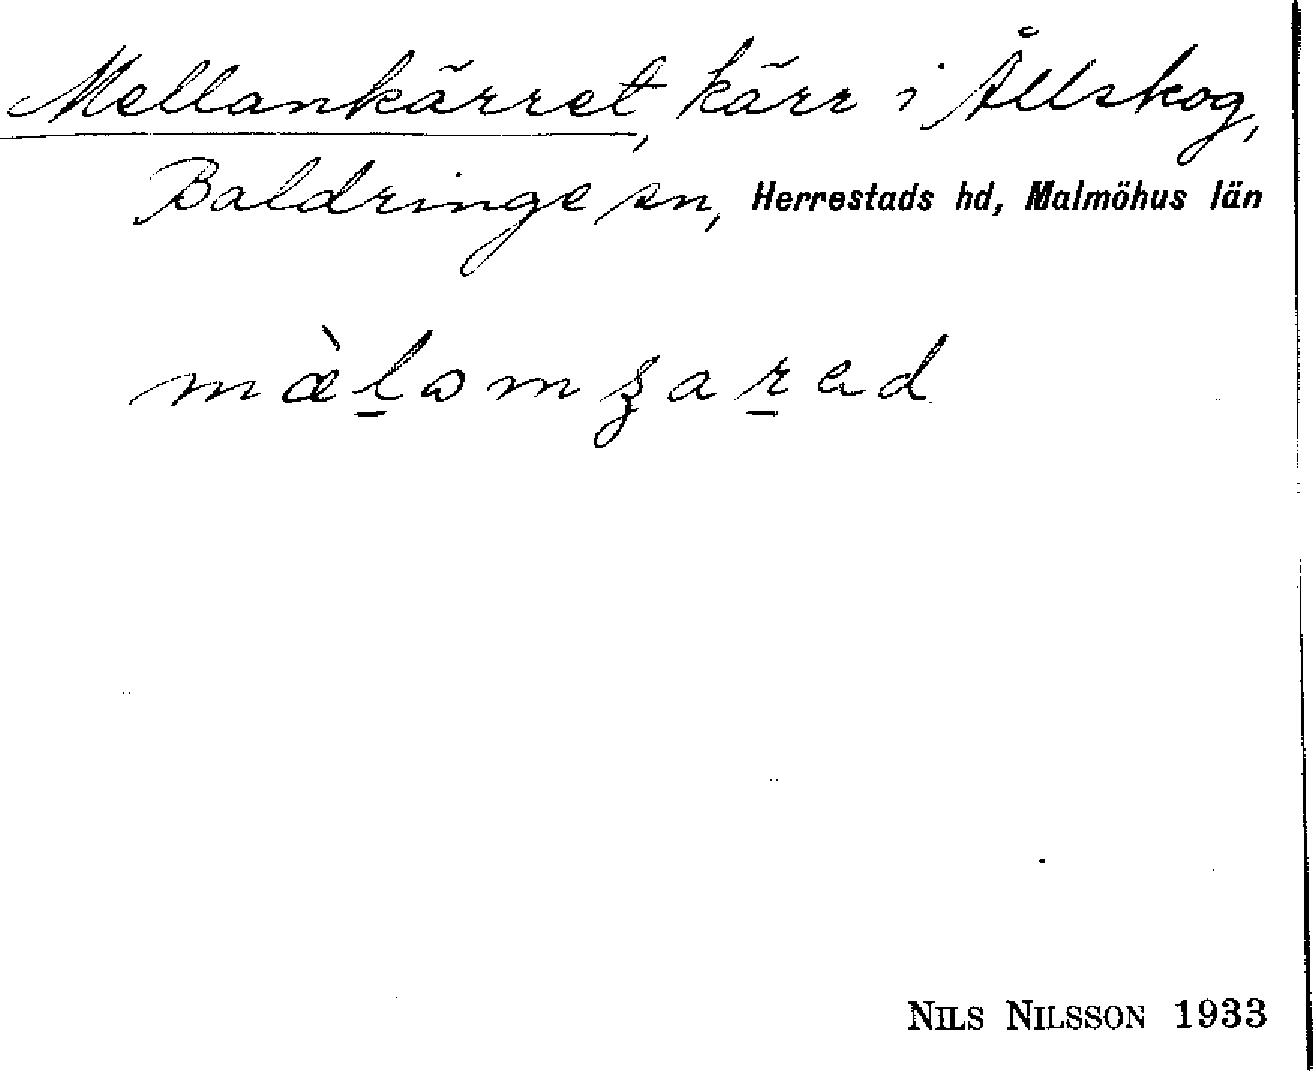 Mellankärret, kärr i Ållskog,
Baldringe sn, Herrestads hd, Malmöhus län
NILS NILSSON 1933